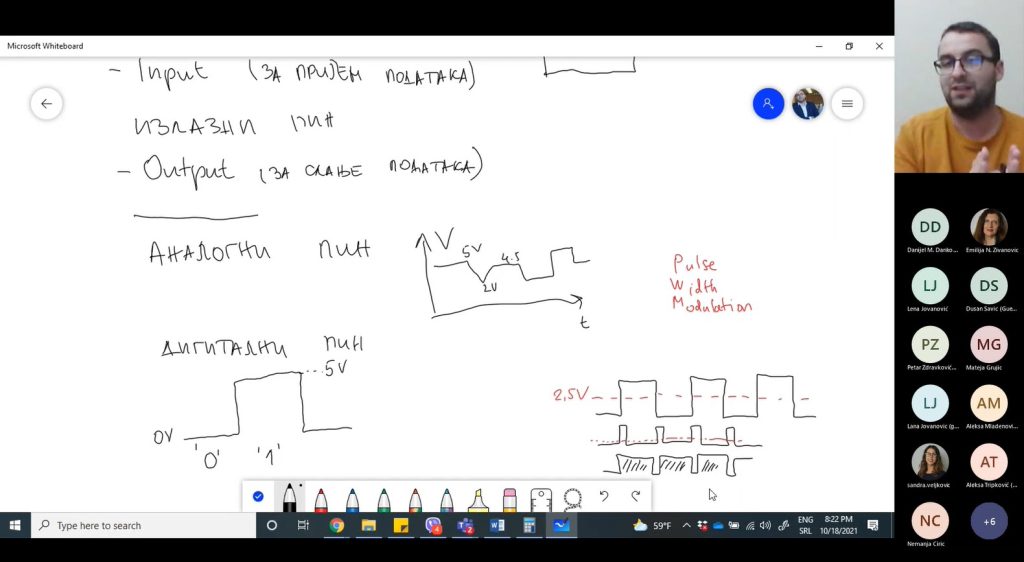 Microsoft Whiteboard
- Input (ЗА ПРИЈЕМ ПОДАТАКА)
ИЗЛАЗНИ ПИН
- Output (ЗА СЛАЊЕ ПОДАТАКА)
АНАЛОГНИ ПИН
V
5V
4.5
2V
t
Pulse
Width
Modulation
ДИГИТАЛНИ ПИН
5V
0V
'0' '1'
2,5V
DD
Danijel M. Danko...
Emilija N. Zivanovic
LJ
Lena Jovanović
DS
Dusan Savic (Gue...
PZ
Petar Zdravković...
MG
Mateja Grujic
LJ
Lana Jovanovic (g...
AM
Aleksa Mladenovi...
sandra.veljkovic
AT
Aleksa Tripković (...
NC
Nemanja Ciric
+6
Type here to search
4
2
59°F
ENG
SRL
8:22 PM
10/18/2021